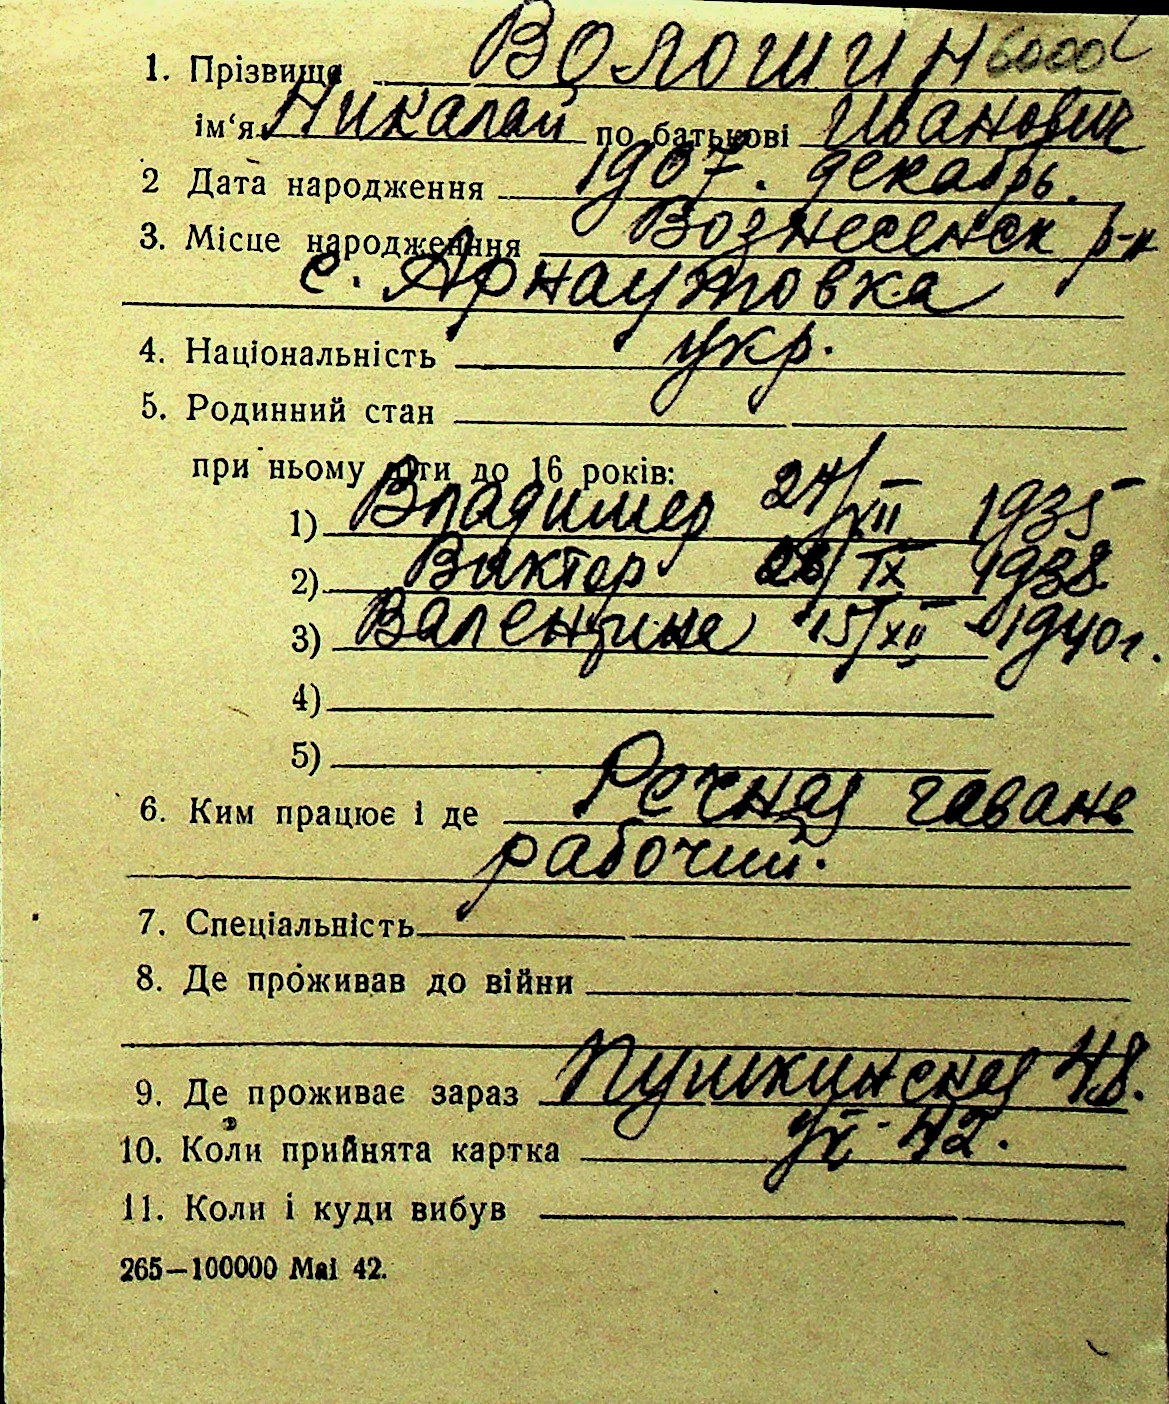 1. Прізвище ВОЛОШИН 6000
ім'я Николай по батькові Иванович
2 Дата народження 1907. декабрь.
3. Місце народження Вознесенск р-н
с. Арнаутовка
4. Національність укр.
5. Родинний стан
при ньому діти до 16 років:
1) Владимер 24/XII 1935
2) Виктор 28/IX 1938
3) Валентина 15/XII 1940г.
4)
5)
6. Ким працює і де Речная гавань
рабочий.
7. Спеціальність
8. Де проживав до війни
9. Де проживає зараз Пушкинская 48.
10. Коли прийнята картка 42.
11. Коли і куди вибув
265—100000 Mai 42.